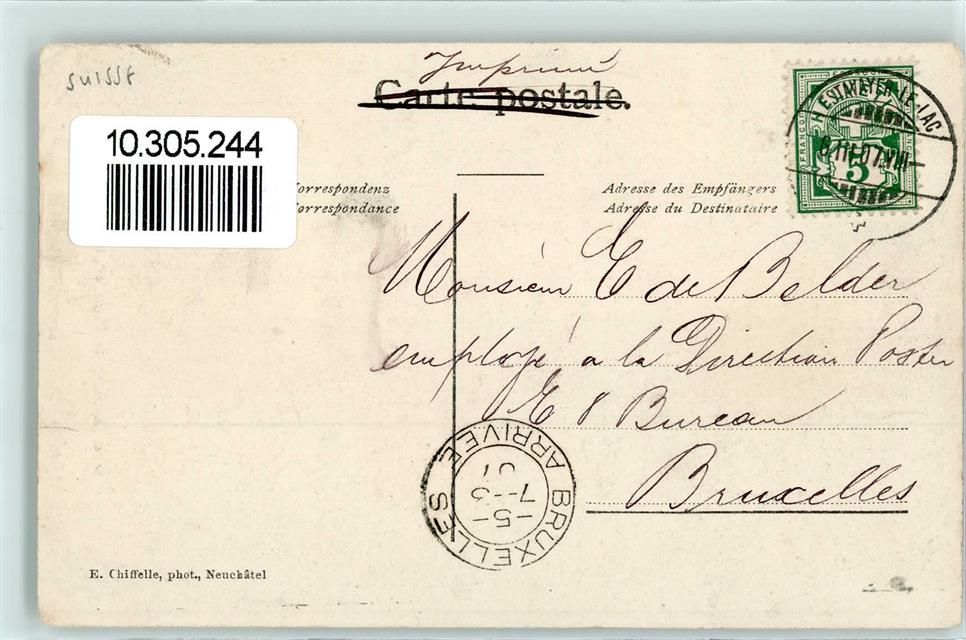 suisse
Imprimé
Carte postale.
10.305.244
Correspondenz
Correspondance
Adresse des Empfängers
Adresse du Destinataire
FRANCO
5
ESTAVAYER-LE-LAC
6.III.07.VIII
Monsieur E de Belder
employé a la Direction Postes
E 8 Bureau
Bruxelles
BRUXELLES
ARRIVEE
-5-
7--3
07
E. Chiffelle, phot., Neuchâtel